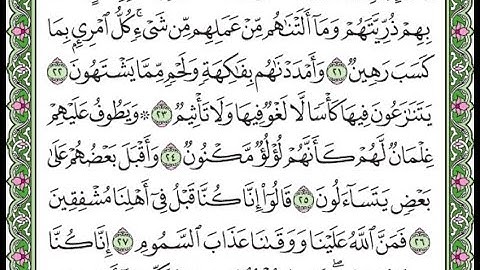 بِهِمْ ذُرِّيَّتَهُمْ وَمَآ أَلَتْنَٰهُم مِّنْ عَمَلِهِم مِّن شَىْءٍۚ كُلُّ ٱمْرِئٍۭ بِمَا
كَسَبَ رَهِينٌ ٢١ وَأَمْدَدْنَٰهُم بِفَٰكِهَةٍ وَلَحْمٍ مِّمَّا يَشْتَهُونَ ٢٢
يَتَنَٰزَعُونَ فِيهَا كَأْسًا لَّا لَغْوٌ فِيهَا وَلَا تَأْثِيمٌ ٢٣ ۞ وَيَطُوفُ عَلَيْهِمْ
غِلْمَانٌ لَّهُمْ كَأَنَّهُمْ لُؤْلُؤٌ مَّكْنُونٌ ٢٤ وَأَقْبَلَ بَعْضُهُمْ عَلَىٰ
بَعْضٍ يَتَسَآءَلُونَ ٢٥ قَالُوٓا۟ إِنَّا كُنَّا قَبْلُ فِىٓ أَهْلِنَا مُشْفِقِينَ
٢٦ فَمَنَّ ٱللَّهُ عَلَيْنَا وَوَقَىٰنَا عَذَابَ ٱلسَّمُومِ ٢٧ إِنَّا كُنَّا